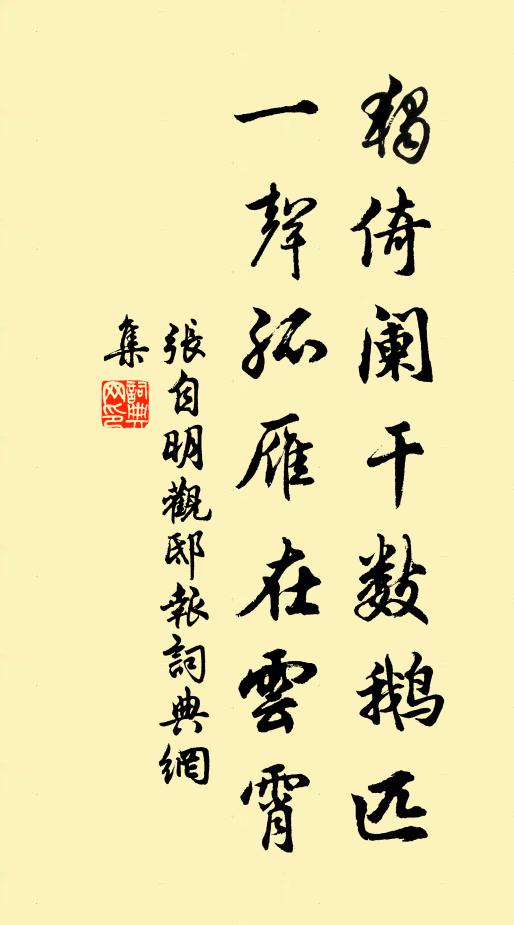 獨倚闌干数鵝匹
一聲孤雁在雲霄
張自明觀邸報詞典網
集
詞典
网印